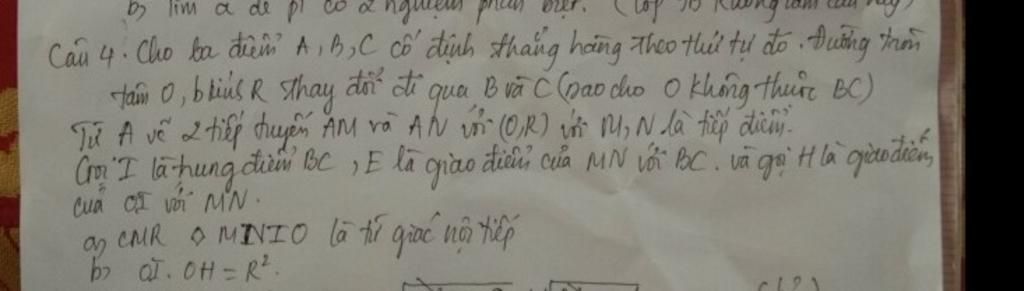 b) Tìm a để pt có 2 nghiệm phân biệt. (Lớp 9B không làm câu này)
Câu 4. Cho ba điểm A, B, C cố định thẳng hàng theo thứ tự đó. Đường tròn
tâm O, bkính R thay đổi đi qua B và C (sao cho O không thuộc BC)
Từ A vẽ 2 tiếp tuyến AM và AN với (O,R) với M, N là tiếp điểm.
Gọi I là trung điểm BC, E là giao điểm của MN với BC. và gọi H là giao điểm
của OI với MN.
a) CMR ◇ MNIO là tứ giác nội tiếp
b) OI. OH = R².